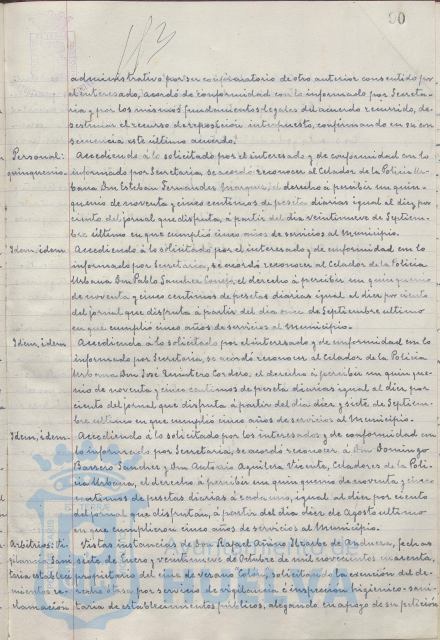 183
90
administrativo por ser confirmatorio de otro anterior consentido por
el interesado, acordó de conformidad con lo informado por Secreta-
ría y por los mismos fundamentos legales del acuerdo recurrido, de-
sestimar el recurso de reposición interpuesto, confirmando en su con
secuencia este último acuerdo.
Personal: Accediendo á lo solicitado por el interesado y de conformidad con lo
quinquenio. informado por Secretaría, se acordó reconocer al Celador de la Policía Ur-
bana Don Esteban Fernandez Marquez, el derecho á percibir un quin-
quenio de noventa y cinco centimos de peseta diarias igual al diez por
ciento del jornal que disfruta, á partir del dia veintinueve de Septiem-
bre último en que cumplió cinco años de servicios al Municipio.
Idem, idem. Accediendo á lo solicitado por el interesado y de conformidad con lo
informado por Secretaría, se acordó reconocer al Celador de la Policía
Urbana Don Pablo Sanchez Conejo, el derecho á percibir un quinquenio
de noventa y cinco centimos de pesetas diarias igual al diez por ciento
del jornal que disfruta á partir del dia once de Septiembre ultimo
en que cumplió cinco años de servicios al Municipio.
Idem, idem Accediendo á lo solicitado por el interesado y de conformidad con lo
informado por Secretaría, se acordó reconocer al Celador de la Policía
Urbana Don José Quintero Cordero, el derecho á percibir un quinque-
nio de noventa y cinco centimos de peseta diarias igual al diez por
ciento del jornal que disfruta á partir del dia diez y siete de Septiem-
bre ultimo en que cumplió cinco años de servicios al Municipio.
Idem, idem. Accediendo á lo solicitado por los interesados y de conformidad con
lo informado por Secretaría, se acordó reconocer á Don Domingo
Barrero Sanchez y Don Antonio Aguilera Vicente, Celadores de la Poli-
cía Urbana, el derecho á percibir un quinquenio de noventa y cinco
centimos de pesetas diarias á cada uno, igual al diez por ciento
del jornal que disfrutan, á partir del dia diez de Agosto ultimo
en que cumplieron cinco años de servicios al Municipio.
Arbitrios: Vi- Vistas instancias de Don Rafael Aiño Ilzarbe de Andueza, fechas
gilancia Sani siete de Enero y veintinueve de Octubre de mil novecientos cuarenta,
taria estableci propietario del cine de verano "Colón", solicitando la exención del de-
mientos re- recho ó tasa por servicio de vigilancia é inspección higienico-sani-
clamación taria de establecimientos públicos, alegando en apoyo de su petición
Ayuntamiento de